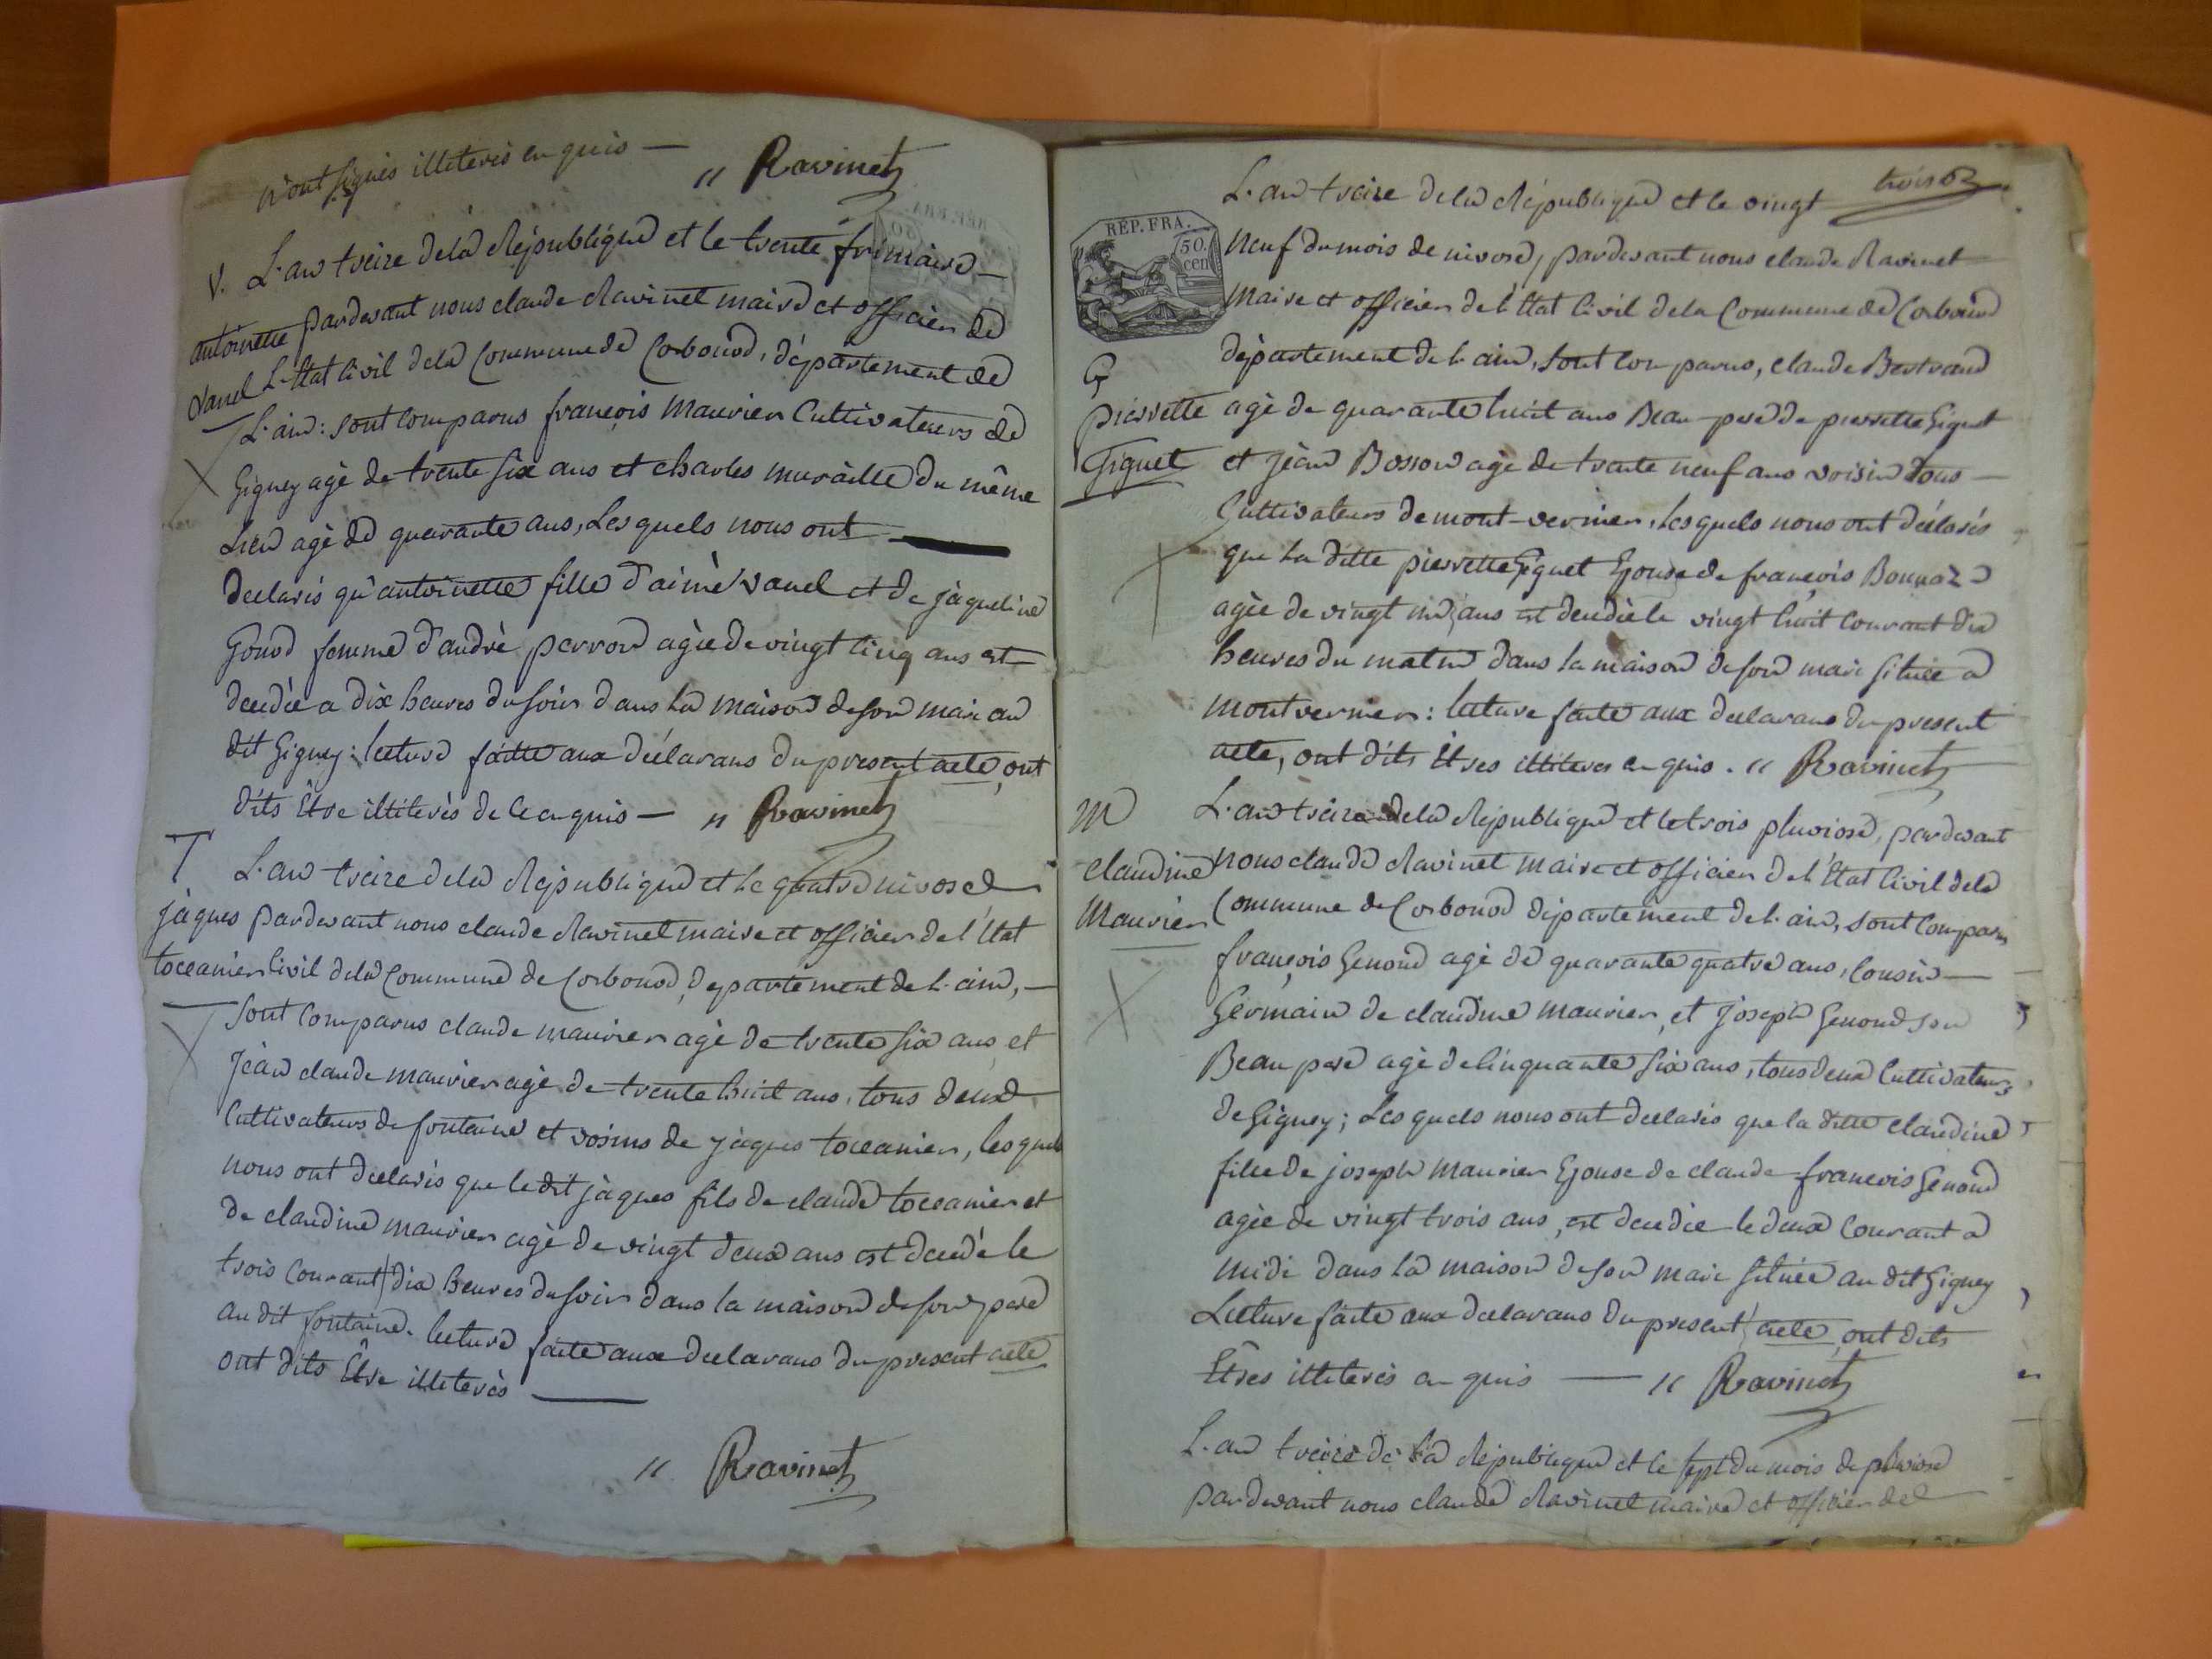 n'ont signés illiterés enquis —
" Ravinet
V. L'an treize de la République et le trente frimaire —
antoinette pardevant nous claude Ravinet maire et officier de
vanel L'Etat Civil de la Commune de Corbonod, département de
L'ain : sont comparus françois Maurier Cultivateurs de
Gigney agé de trente six ans et charles muraille du même
Lieu agé de quarante ans, Lesquels nous ont —
declarés qu'antoinette fille d'aimé vanel et de jaqueline
Gonod femme d'andré perron agée de vingt cinq ans est
decedée a dix heures du soir dans la maison de son mari au
dit Gigney : lecture faitte aux déclarans du present acte, ont
dits Etre illiterés de ce enquis — " Ravinet
T L'an treize de la République et le quatre nivose
jàques pardevant nous claude Ravinet maire et officier de l'Etat
toccanier Civil de la Commune de Corbonod, departement de L'ain, —
sont Comparus claude maurier agé de trente six ans et
Jean claude maurier agé de trente huit ans, tous deux
Cultivateurs de fontaine et voisins de jàques toccanier, lesquels
nous ont declarés que le dit jàques fils de claude toccanier et
de claudine maurier agé de vingt deux ans est decedé le
trois Courant dix heures du soir dans la maison de son pere
au dit fontaine. lecture faite aux declarans du present acte
ont dits Etre illiterés —
" Ravinet
trois
L'an treize de la République et le vingt
RÉP. FRA.
50 cen
neuf du mois de nivose, pardevant nous claude Ravinet
Maire et officier de L'Etat Civil de la Commune de Corbonod
G département de L'ain, sont Comparus, claude Bertrand
pierrette agé de quarante huit ans Beau-pere de pierrette Giguet
Giguet et jean Bosson agé de trente neuf ans voisin tous —
Cultivateurs de mont-vernier, lesquels nous ont déclarés
que la ditte pierrette Giguet Epouse de françois Bonnaz
agée de vingt ans est decedée le vingt huit Courant dix
heures du matin dans la maison de son mari située a
montvernier : lecture faite aux declarans du present
acte, ont dits Etres illiteres enquis. " Ravinet
M L'an treize de la République et le trois pluviose, pardevant
claudine nous claude Ravinet maire et officier de l'Etat Civil de la
Maurier Commune de Corbonod département de L'ain, sont Comparus
françois Genond agé de quarante quatre ans, Cousin —
Germain de claudine maurier, et Joseph Genond son
Beau pere agé de Cinquante six ans, tous deux Cultivateurs
de Gigney ; Lesquels nous ont declarés que la ditte claudine
fille de joseph Maurier Epouse de claude françois Genond
agée de vingt trois ans, est decedée le deux Courant a
midi dans la maison de son mari située au dit Gigney
Lecture faite aux declarans du present acte, ont dits
Etres illiterés enquis — " Ravinet
L'an treize de la République et le sept du mois de pluviose
pardevant nous claude Ravinet maire et officier de l